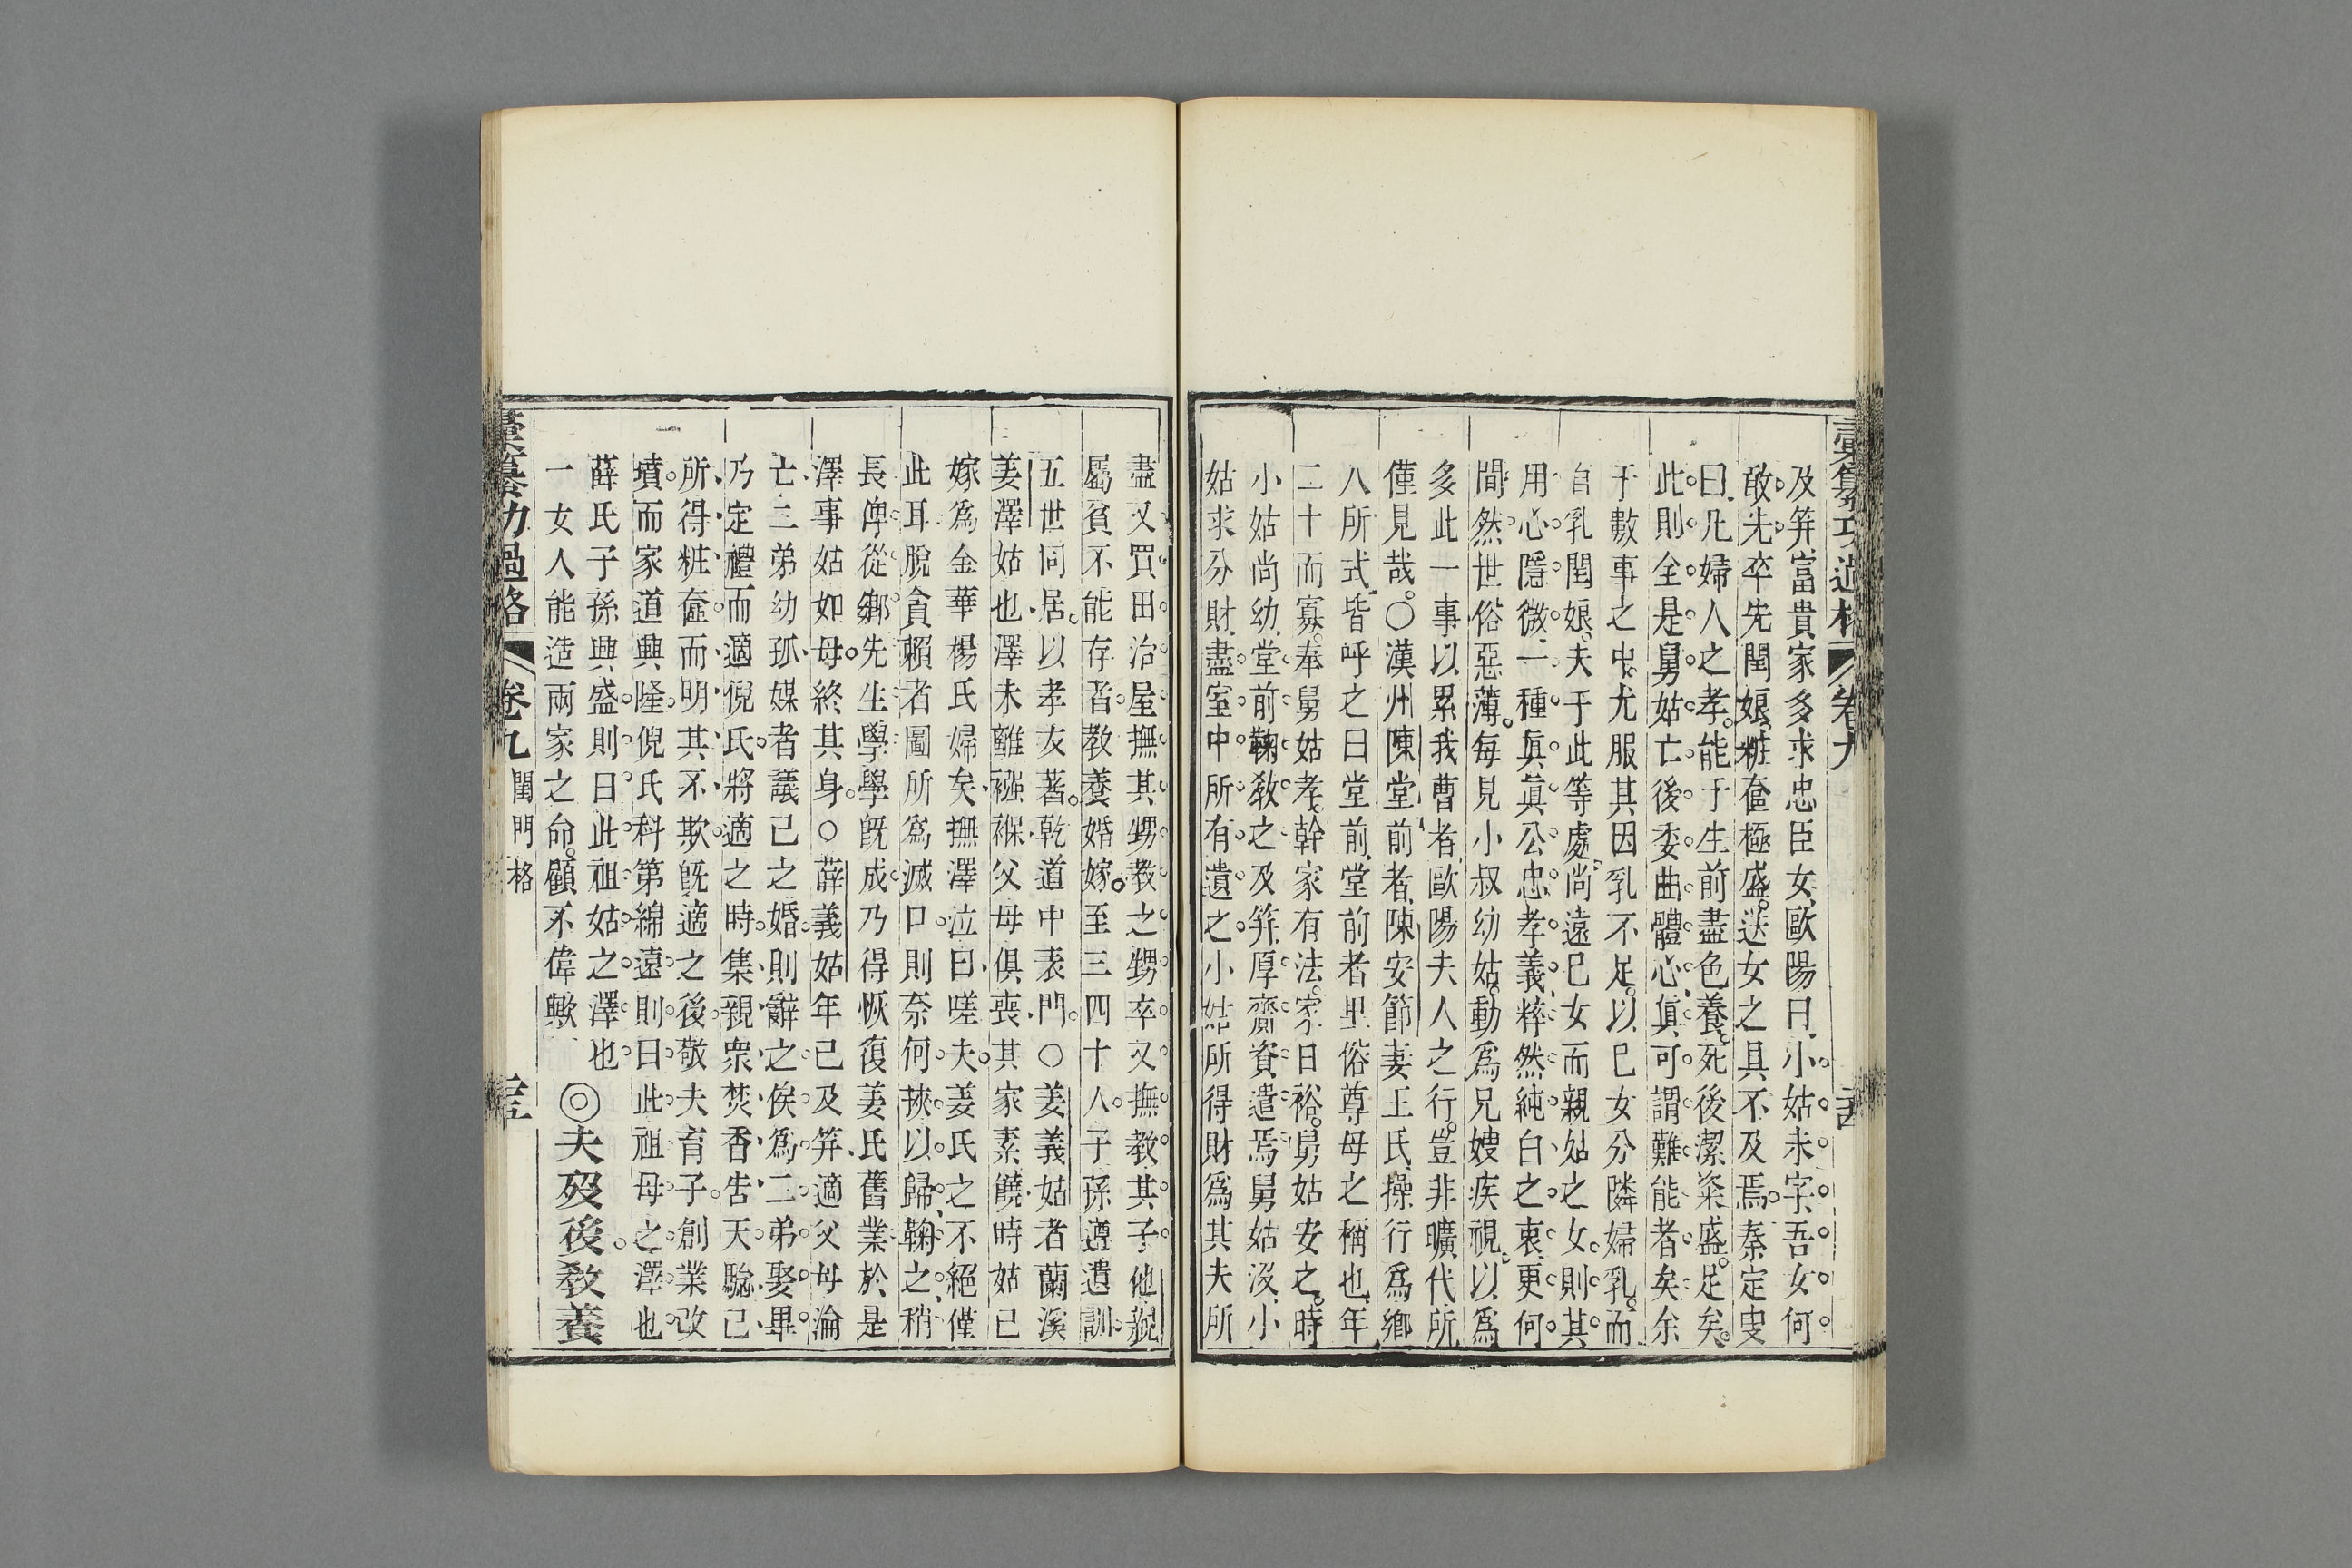 彙纂功過格 卷九
及笄富貴家多求忠臣女歐陽曰小姑未字吾女何
敢先卒先閨娘粧奩極盛送女之具不及焉秦定叟
曰凡婦人之孝能于生前盡色養死後潔粢盛足矣
此則全是舅姑亡後委曲體心眞可謂難能者矣余
于數事之中尤服其因乳不足以已女分隣婦乳而
自乳閨娘夫于此等處尚遠已女而親姑之女則其
用心隱微一種眞眞公忠孝義粹然純白之衷更何
間然世俗惡薄每見小叔幼姑動爲兄嫂疾視以爲
多此一事以累我曹者歐陽夫人之行豈非曠代所
僅見哉○漢州陳堂前者陳安節妻王氏操行爲鄉
八所式皆呼之曰堂前堂前者里俗尊母之稱也年
二十而寡奉舅姑孝幹家有法家日裕舅姑安之時
小姑尚幼堂前鞠教之及笄厚齎資遣焉舅姑沒小
姑求分財盡室中所有遺之小姑所得財爲其夫所
盡又買田治屋撫其甥教之甥卒又撫教其子他親
屬貧不能存者教養婚嫁至三四十人子孫遵遺訓
五世同居以孝友著乾道中表門○姜義姑者蘭溪
姜澤姑也澤未離襁褓父母俱喪其家素饒時姑已
嫁爲金華楊氏婦矣撫澤泣曰嗟夫姜氏之不絕僅
此耳脫貪賴者圖所爲滅口則奈何挾以歸鞠之稍
長俾從鄉先生學學旣成乃得恢復姜氏舊業於是
澤事姑如母終其身○薛義姑年已及笄適父母淪
亡二弟幼孤媒者議己之婚則辭之俟爲二弟娶畢
乃定禮而適倪氏將適之時集親衆焚香告天驗己
所得粧奩而明其不欺旣適之後敬夫育子創業改
墳而家道興隆倪氏科第綿遠則曰此祖母之澤也
薛氏子孫興盛則曰此祖姑之澤也
一女人能造兩家之命顧不偉歟 ◎夫歿後教養
彙纂功過格 卷九 閨門格